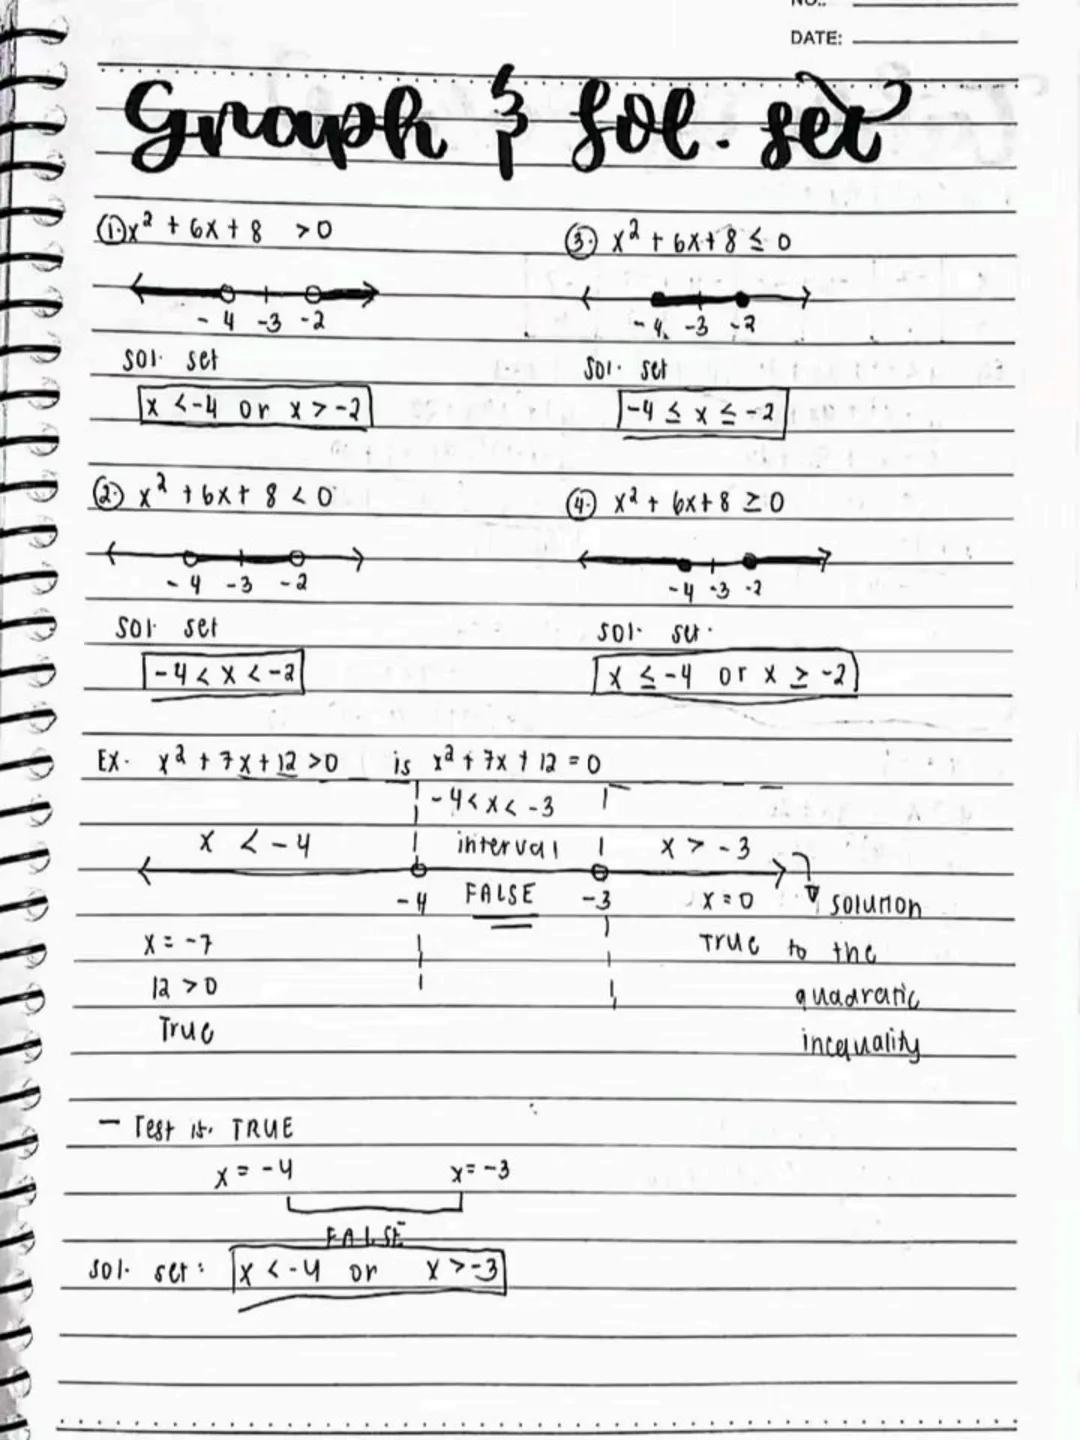 NO.:
DATE:
Graph & Sol. set
① x² + 6x + 8 > 0
-4 -3 -2
sol. set
x < -4 or x > -2
③ x² + 6x + 8 ≤ 0
-4 -3 -2
sol. set
-4 ≤ x ≤ -2
② x² + 6x + 8 < 0
-4 -3 -2
sol. set
-4 < x < -2
④ x² + 6x + 8 ≥ 0
-4 -3 -2
sol. set.
x ≤ -4 or x ≥ -2
EX. x² + 7x + 12 > 0 is x² + 7x + 12 = 0
-4 < x < -3
x < -4 interval x > -3
-4 FALSE -3 x = 0 solution
x = -7 True to the
12 > 0 quadratic
True inequality
- Test is. TRUE
x = -4 x = -3
FALSE
sol. set: x < -4 or x > -3